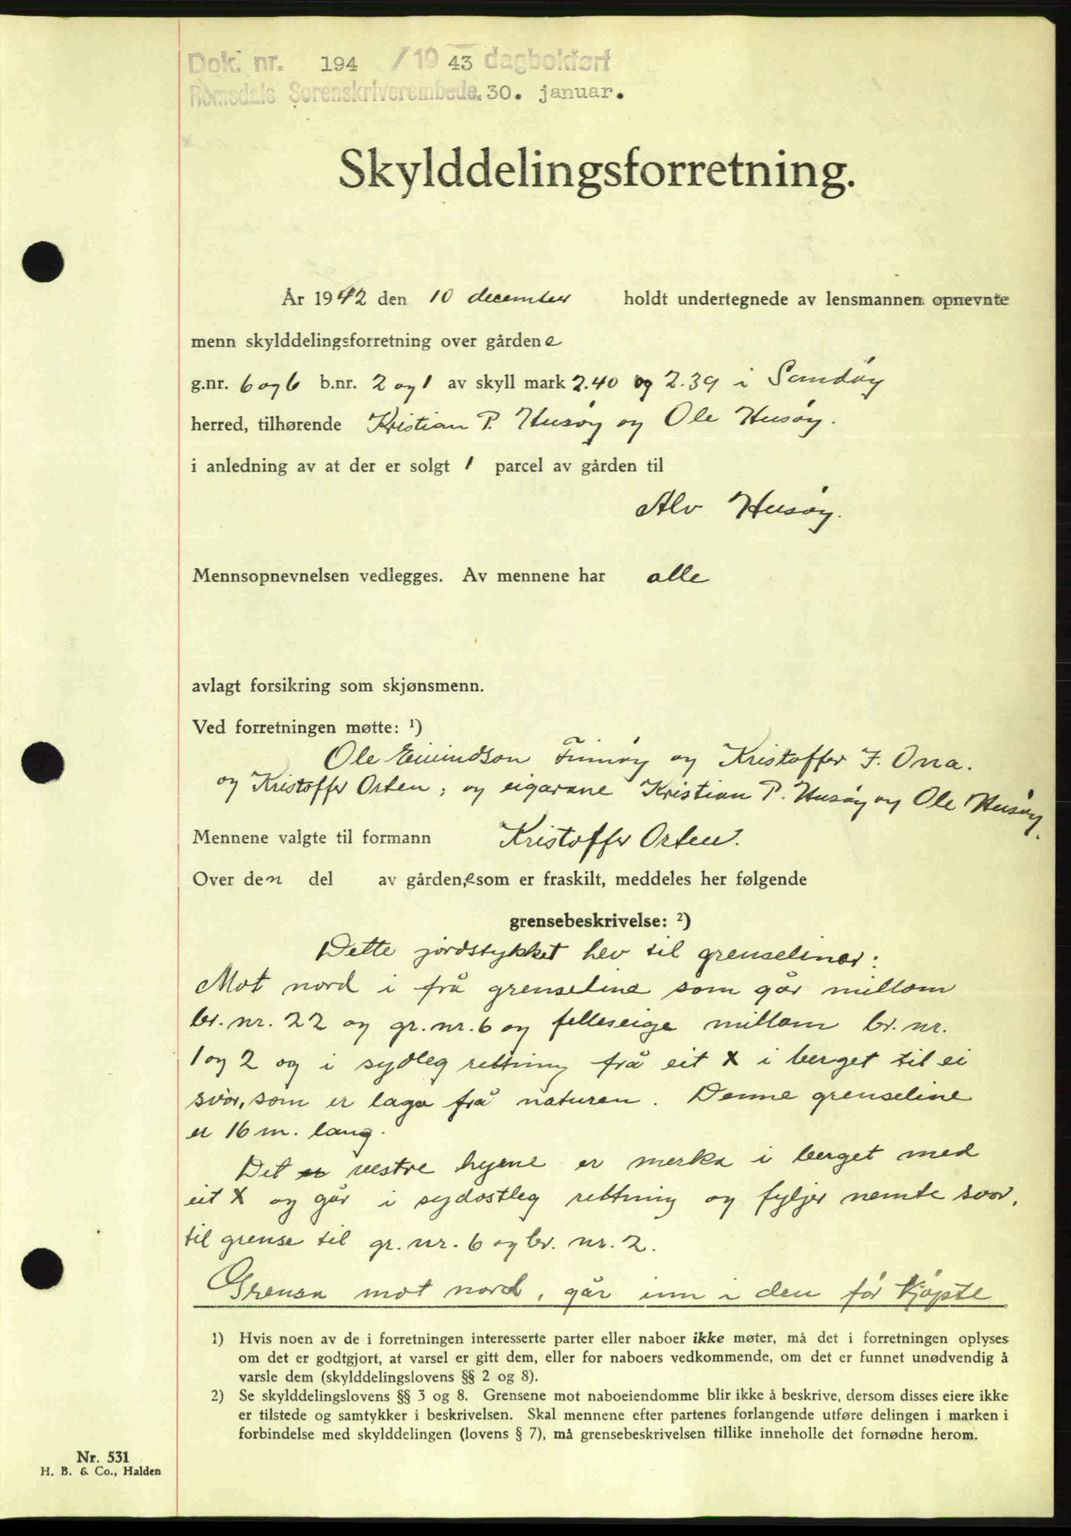 Dok. nr. 194 /1943 dagbokført
Romsdals Sorenskriverembede. 30. januar.
Skylddelingsforretning.
År 1942 den 10 december holdt undertegnede av lensmannen opnevnte
menn skylddelingsforretning over gårdene
g.nr. 6 og 6 b.nr. 2 og 1 av skyll mark 2.40 og 2.39 i Sandøy
herred, tilhørende Kristian P. Husøy og Ole Husøy.
i anledning av at der er solgt 1 parcel av gården til
Alv Husøy.
Mennsopnevnelsen vedlegges. Av mennene har alle
avlagt forsikring som skjønsmenn.
Ved forretningen møtte: ¹)
Ole Eivindson Finnøy og Kristoffer F. Ona.
og Kristoffer Orten; og eigarane Kristian P. Husøy og Ole Husøy.
Mennene valgte til formann Kristoffer Orten.
Over den del av gården,e som er fraskilt, meddeles her følgende
grensebeskrivelse: ²)
Dette jordstykket hev til grenseliner:
Mot nord i frå grenseline som går millom
br. nr. 22 og gr. nr. 6 og felleseige millom br. nr.
1 og 2 og i sydleg rettning frå eit X i berget til ei
svòr, som er laga frå naturen. Denne grenseline
er 16 m. lang.
Det er vestre hyrne er merka i berget med
eit X og går i sydostleg rettning og fyljer nemte svor,
til grense til gr. nr. 6 og br. nr. 2.
Grensa mot nord, går inn i den før kjøpte
1) Hvis noen av de i forretningen interesserte parter eller naboer ikke møter, må det i forretningen oplyses
om det er godtgjort, at varsel er gitt dem, eller for naboers vedkommende, om det er funnet unødvendig å
varsle dem (skylddelingslovens §§ 2 og 8).
2) Se skylddelingslovens §§ 3 og 8. Grensene mot naboeiendomme blir ikke å beskrive, dersom disses eiere ikke
er tilstede og samtykker i beskrivelsen. Skal mennene efter partenes forlangende utføre delingen i marken i
forbindelse med skylddelingen (lovens § 7), må grensebeskrivelsen tillike inneholle det fornødne herom.
Nr. 531
H. B. & Co., Halden